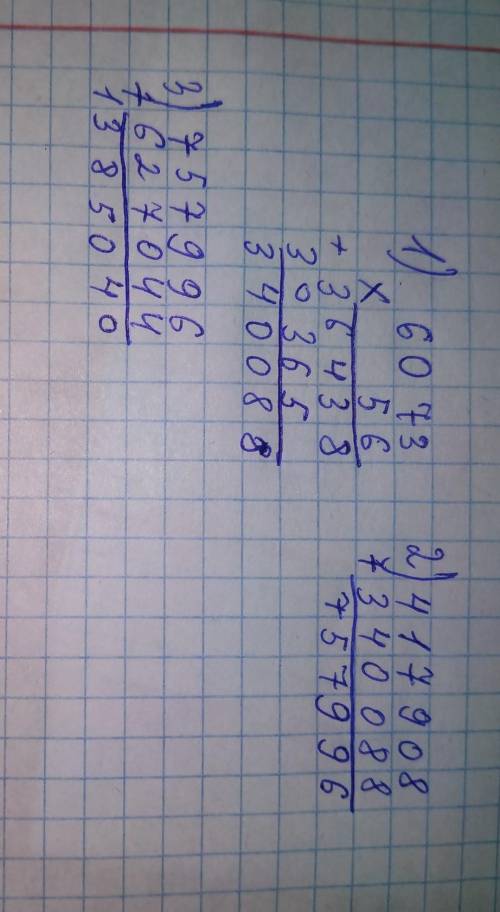 1) 6073
× 56
+ 36438
30365
340088
2) 417908
+ 340088
757996
3) 757996
+ 627044
1385040